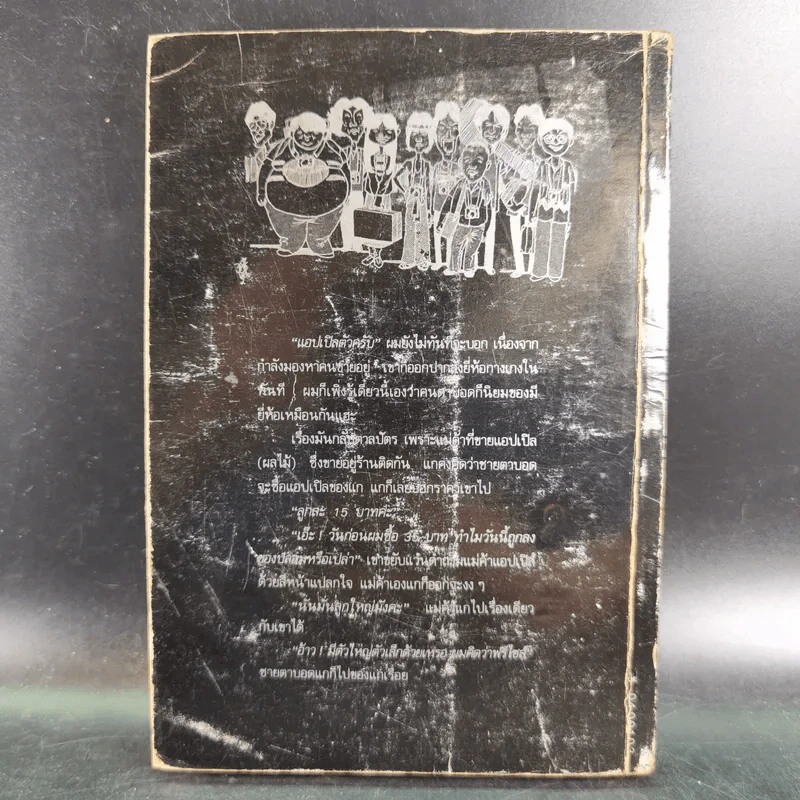 "แอปเปิลตัวครับ" ผมยังไม่ทันที่จะบอก เนื่องจาก
กำลังมองหาคนขายอยู่ เขาก็ออกปากสั่งยี่ห้อกางเกงใน
ทันที ผมก็เพิ่งรู้เดี๋ยวนี้เองว่าคนตาบอดก็นิยมของมี
ยี่ห้อเหมือนกันแฮะ
เรื่องมันกลับตาลปัตร เพราะแม่ค้าที่ขายแอปเปิล
(ผลไม้) ซึ่งขายอยู่ร้านติดกัน แกคงคิดว่าชายตาบอด
จะซื้อแอปเปิลของแก แกก็เลยบอกราคาเข้าไป
"ลูกละ 15 บาทค่ะ"
"เอ๊ะ ! วันก่อนผมซื้อ 35 บาท ทำไมวันนี้ถูกลง
ของปลอมหรือเปล่า" เขาขยับแว่นดำถามแม่ค้าแอปเปิล
ด้วยสีหน้าแปลกใจ แม่ค้าเองแกก็ออกจะงง ๆ
"นั่นมันลูกใหญ่มังคะ" แม่ค้าแกไปเรื่องเดียว
กับเขาได้
"อ้าว ! มีตัวใหญ่ตัวเล็กด้วยเหรอ ผมคิดว่าฟรีไซส์"
ชายตาบอดแกก็ไปของแกเรื่อย